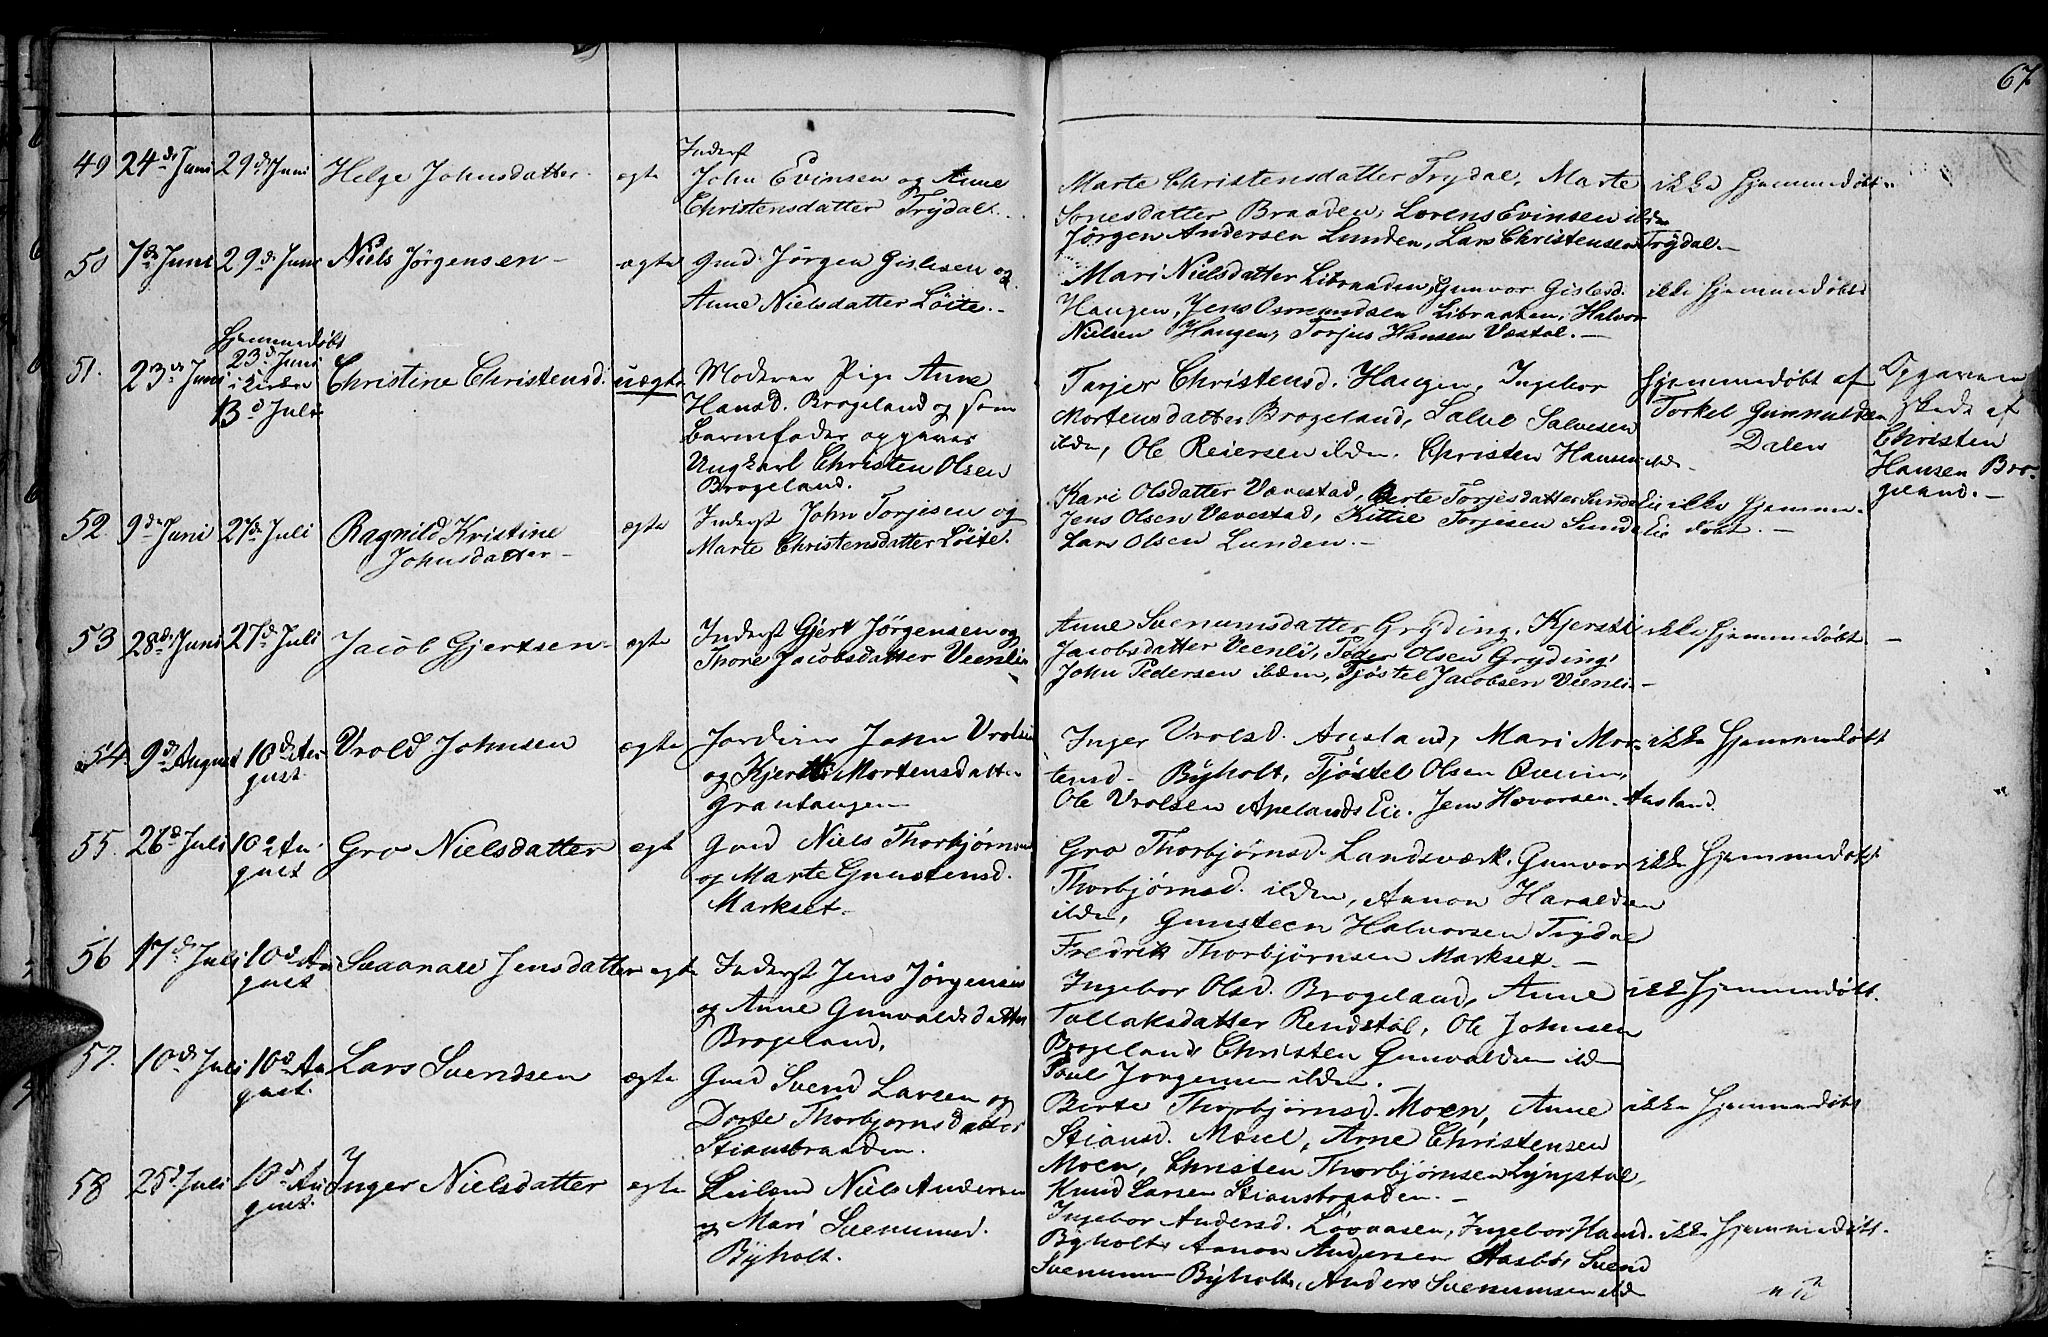 67
49 24de Juni 29de Juni Helge Johnsdatter. ægte Inderst
John Evinsen og Anne
Christensdatter Trydal.
Marte Christensdatter Trydal, Marte ikke hjemmedøbt.
Jonesdatter Braaden, Lorens Evinsen ibdm
Jørgen Andersen Lunden, Lars Christensen Trydal.
50 7de Juni 29de Juni Niels Jørgensen ægte Gmd. Jørgen Gislesen og
Anne Nielsdatter Løite.
Mari Nielsdatter Libraaden, Gunvor Gislesd. ikke hjemmedøbt
Haugen, Jens Osmundsen Libraaten, Halvor
Nielsen Haugen, Torjus Hansen Væstøl.
51. 23de Juni Hjemmedøbt
23de Juni
i Kirken
13de Juli Christine Christensd. uægte Moderen Pige Anne
Hansd. Brogeland og som
Barnefader opgaves
Ungkarl Christen Olsen
Brogeland.
Tarjer Christensd. Haugen, Ingebor
Mortensdatter Brogeland, Salve Salvesen
ibdm, Ole Reiersen ibdm. Christen Hansen ibdm.
Hjemmedøbt af
Torkel Gunnuldsen
Dalen
Opgaven
skede af
Christen
Hansen Bro-
geland.
52. 9de Juni 27de Juli Ragnild Kristine
Johnsdatter ægte Inderst John Torjesen og
Marte Christensdatter Løite.
Kari Olsdatter Vævestad, Berte Torjesdatter Sundslie ikke hjemme-
Jens Olsen Vævestad, Kittil Torjesen Sundslie døbt.
Lars Olsen Lunden.
53 28de Juni 27de Juli Jacob Gjertsen ægte Inderst Gjert Jørgensen og
Thore Jacobsdatter Veenli
Anne Svenumsdatter Gryding, Kjersti ikke hjemmedøbt
Jacobsdatter Veenli, Peder Olsen Gryding,
John Pedersen ibdm, Tjøstel Jacobsen Veenli
54. 9de August 10de Au-
gust. Vrold Johnsen ægte Jordeier John Vrolsen
og Kjersti Mortensdatter
Grantangen
Inger Vrolsd. Ausland, Mari Mor- ikke hjemmedøbt
tensd. Byholt, Tjøstel Olsen
Ole Vrolsen Apelands Eie. Jens Hovorsen Ausland.
55. 26de Juli 10de Au-
gust Gro Nielsdatter ægte Gmd Niels Thorbjørnsen
og Marte Gunstensd.
Markset
Gro Thorbjørnsd. Landsværk, Gunvor ikke hjemmedøbt
Thorbjørnsd. ibdm, Aanon Haraldsen
ibdm, Gunsteen Halvorsen Tigdal
Fredrik Thorbjørnsen Markset.
56 17de Juli 10de Au-
gust Jensdatter ægte Inderst Jens Jørgensen
og Anne Gunvaldsdatter
Brogeland.
Ingebor Olsd. Brogeland, Anne ikke hjemmedøbt.
Tallaksdatter Rendstøl, Ole Johnsen
Brogeland, Christen Gunvaldsen ibdm
Poul Jørgensen ibdm.
57. 10de Juli 10de Au-
gust. Lars Svendsen ægte Gmd Svend Larsen og
Dorte Thorbjørnsdatter
Stiansbraaden.
Berte Thorbjørnsd. Moen, Anne ikke hjemmedøbt
Stiansd. Mæsel, Arne Christensen
Moen, Christen Thorbjørnsen Lyngstøl,
Knud Larsen Stiansbraaden.
58 25de Juli 10de Au-
gust. Inger Nielsdatter ægte Leilend Niels Andersen
og Mari Svenumsd.
Byholt.
Ingebor Andersd. Løvaasen, Ingebor Hansd. ikke hjemmedøbt.
Byholt, Aanon Andersen Aasbø, Svend
Svenumsen Byholt, Anders Svenumsen ibdm